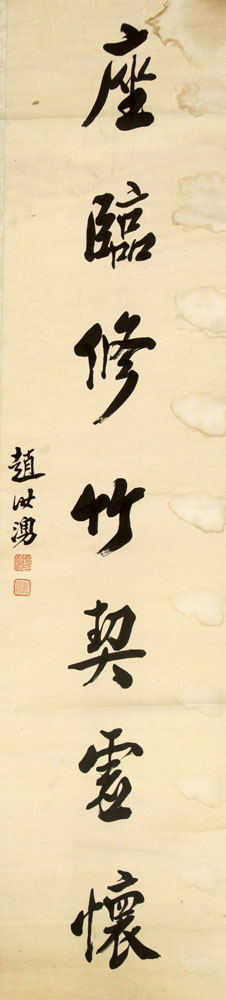 座臨修竹契虛懷
趙世湧